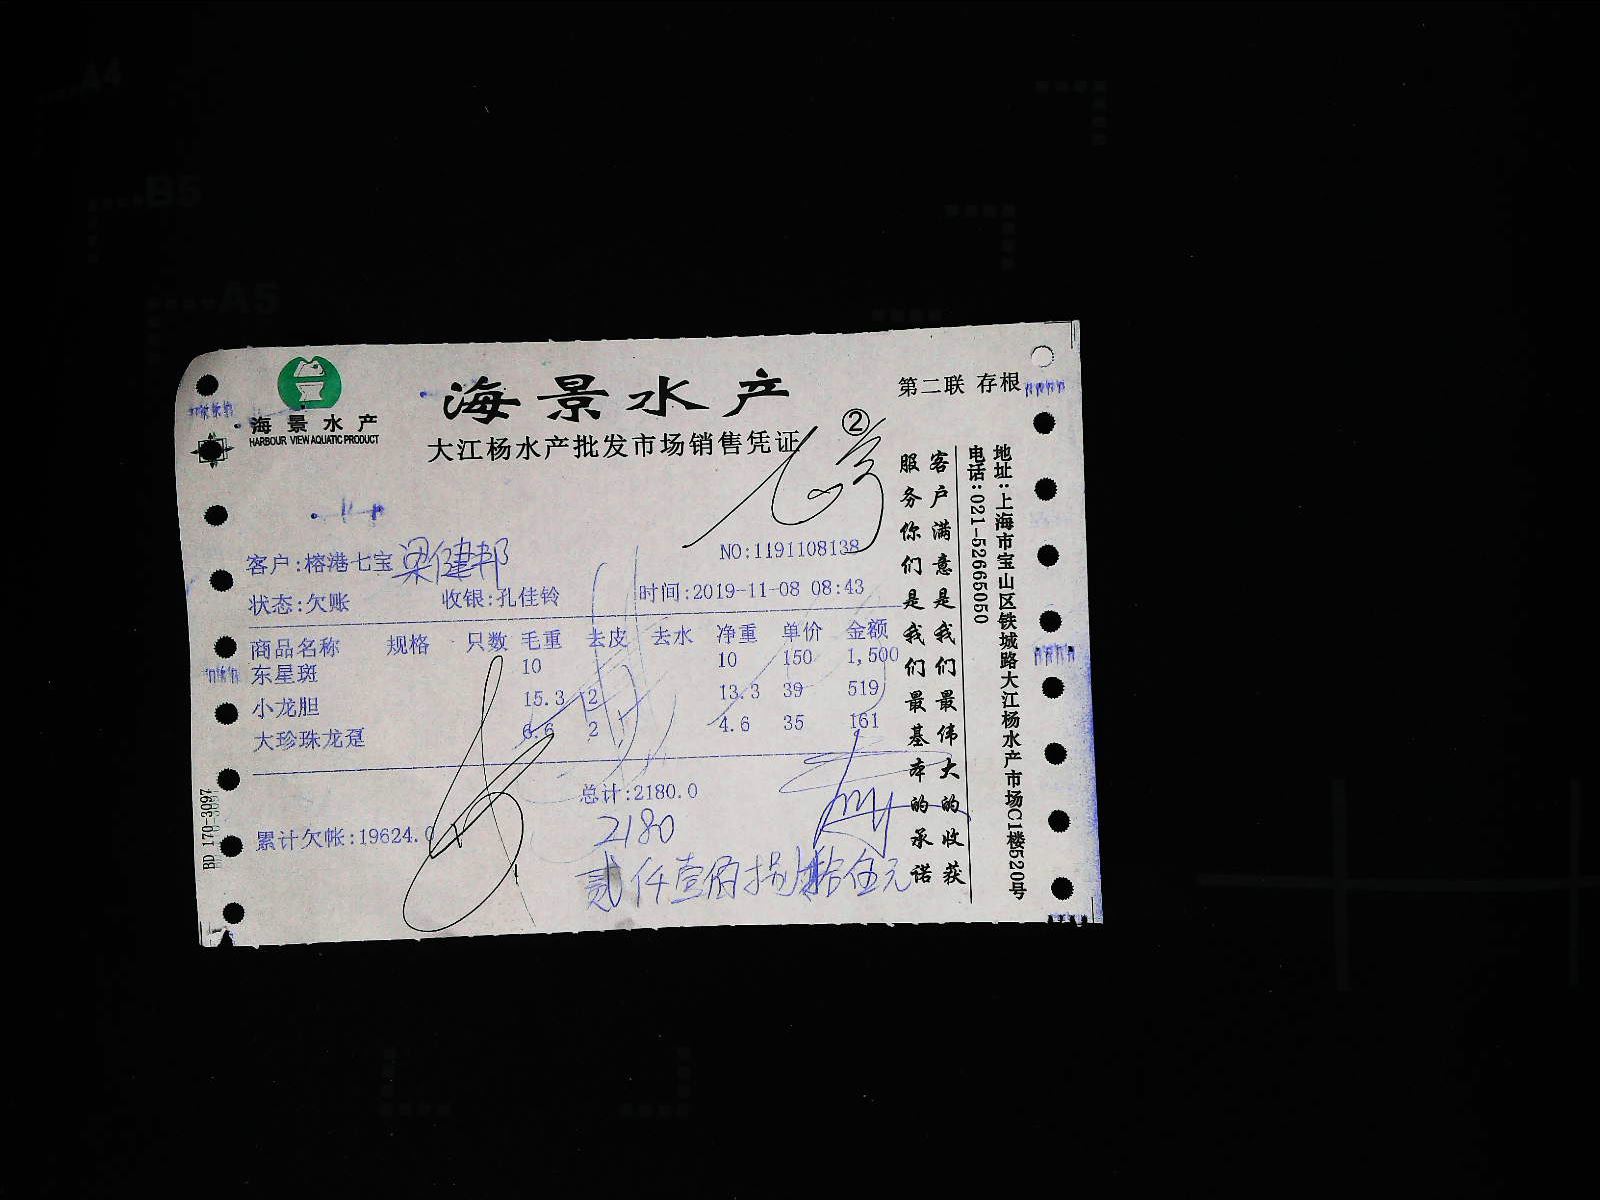 A4
B5
A5
海景水产
HARBOUR VIEW AQUATIC PRODUCT
海景水产
大江杨水产批发市场销售凭证
②
第二联 存根
客户:榕港七宝 梁健邦
NO:1191108138
状态:欠账 收银:孔佳铃 时间:2019-11-08 08:43
商品名称 规格 只数 毛重 去皮 去水 净重 单价 金额
东星斑 10 10 150 1,500
小龙胆 15.3 2 13.3 39 519
大珍珠龙趸 6.6 2 4.6 35 161
总计:2180.0
累计欠帐:19624.0
2180
贰仟壹佰捌拾伍元
客户满意是我们最伟大的收获
服务你们是我们最基本的承诺
地址:上海市宝山区铁城路大江杨水产市场C1楼520号
电话:021-52665050
BD 170-3097